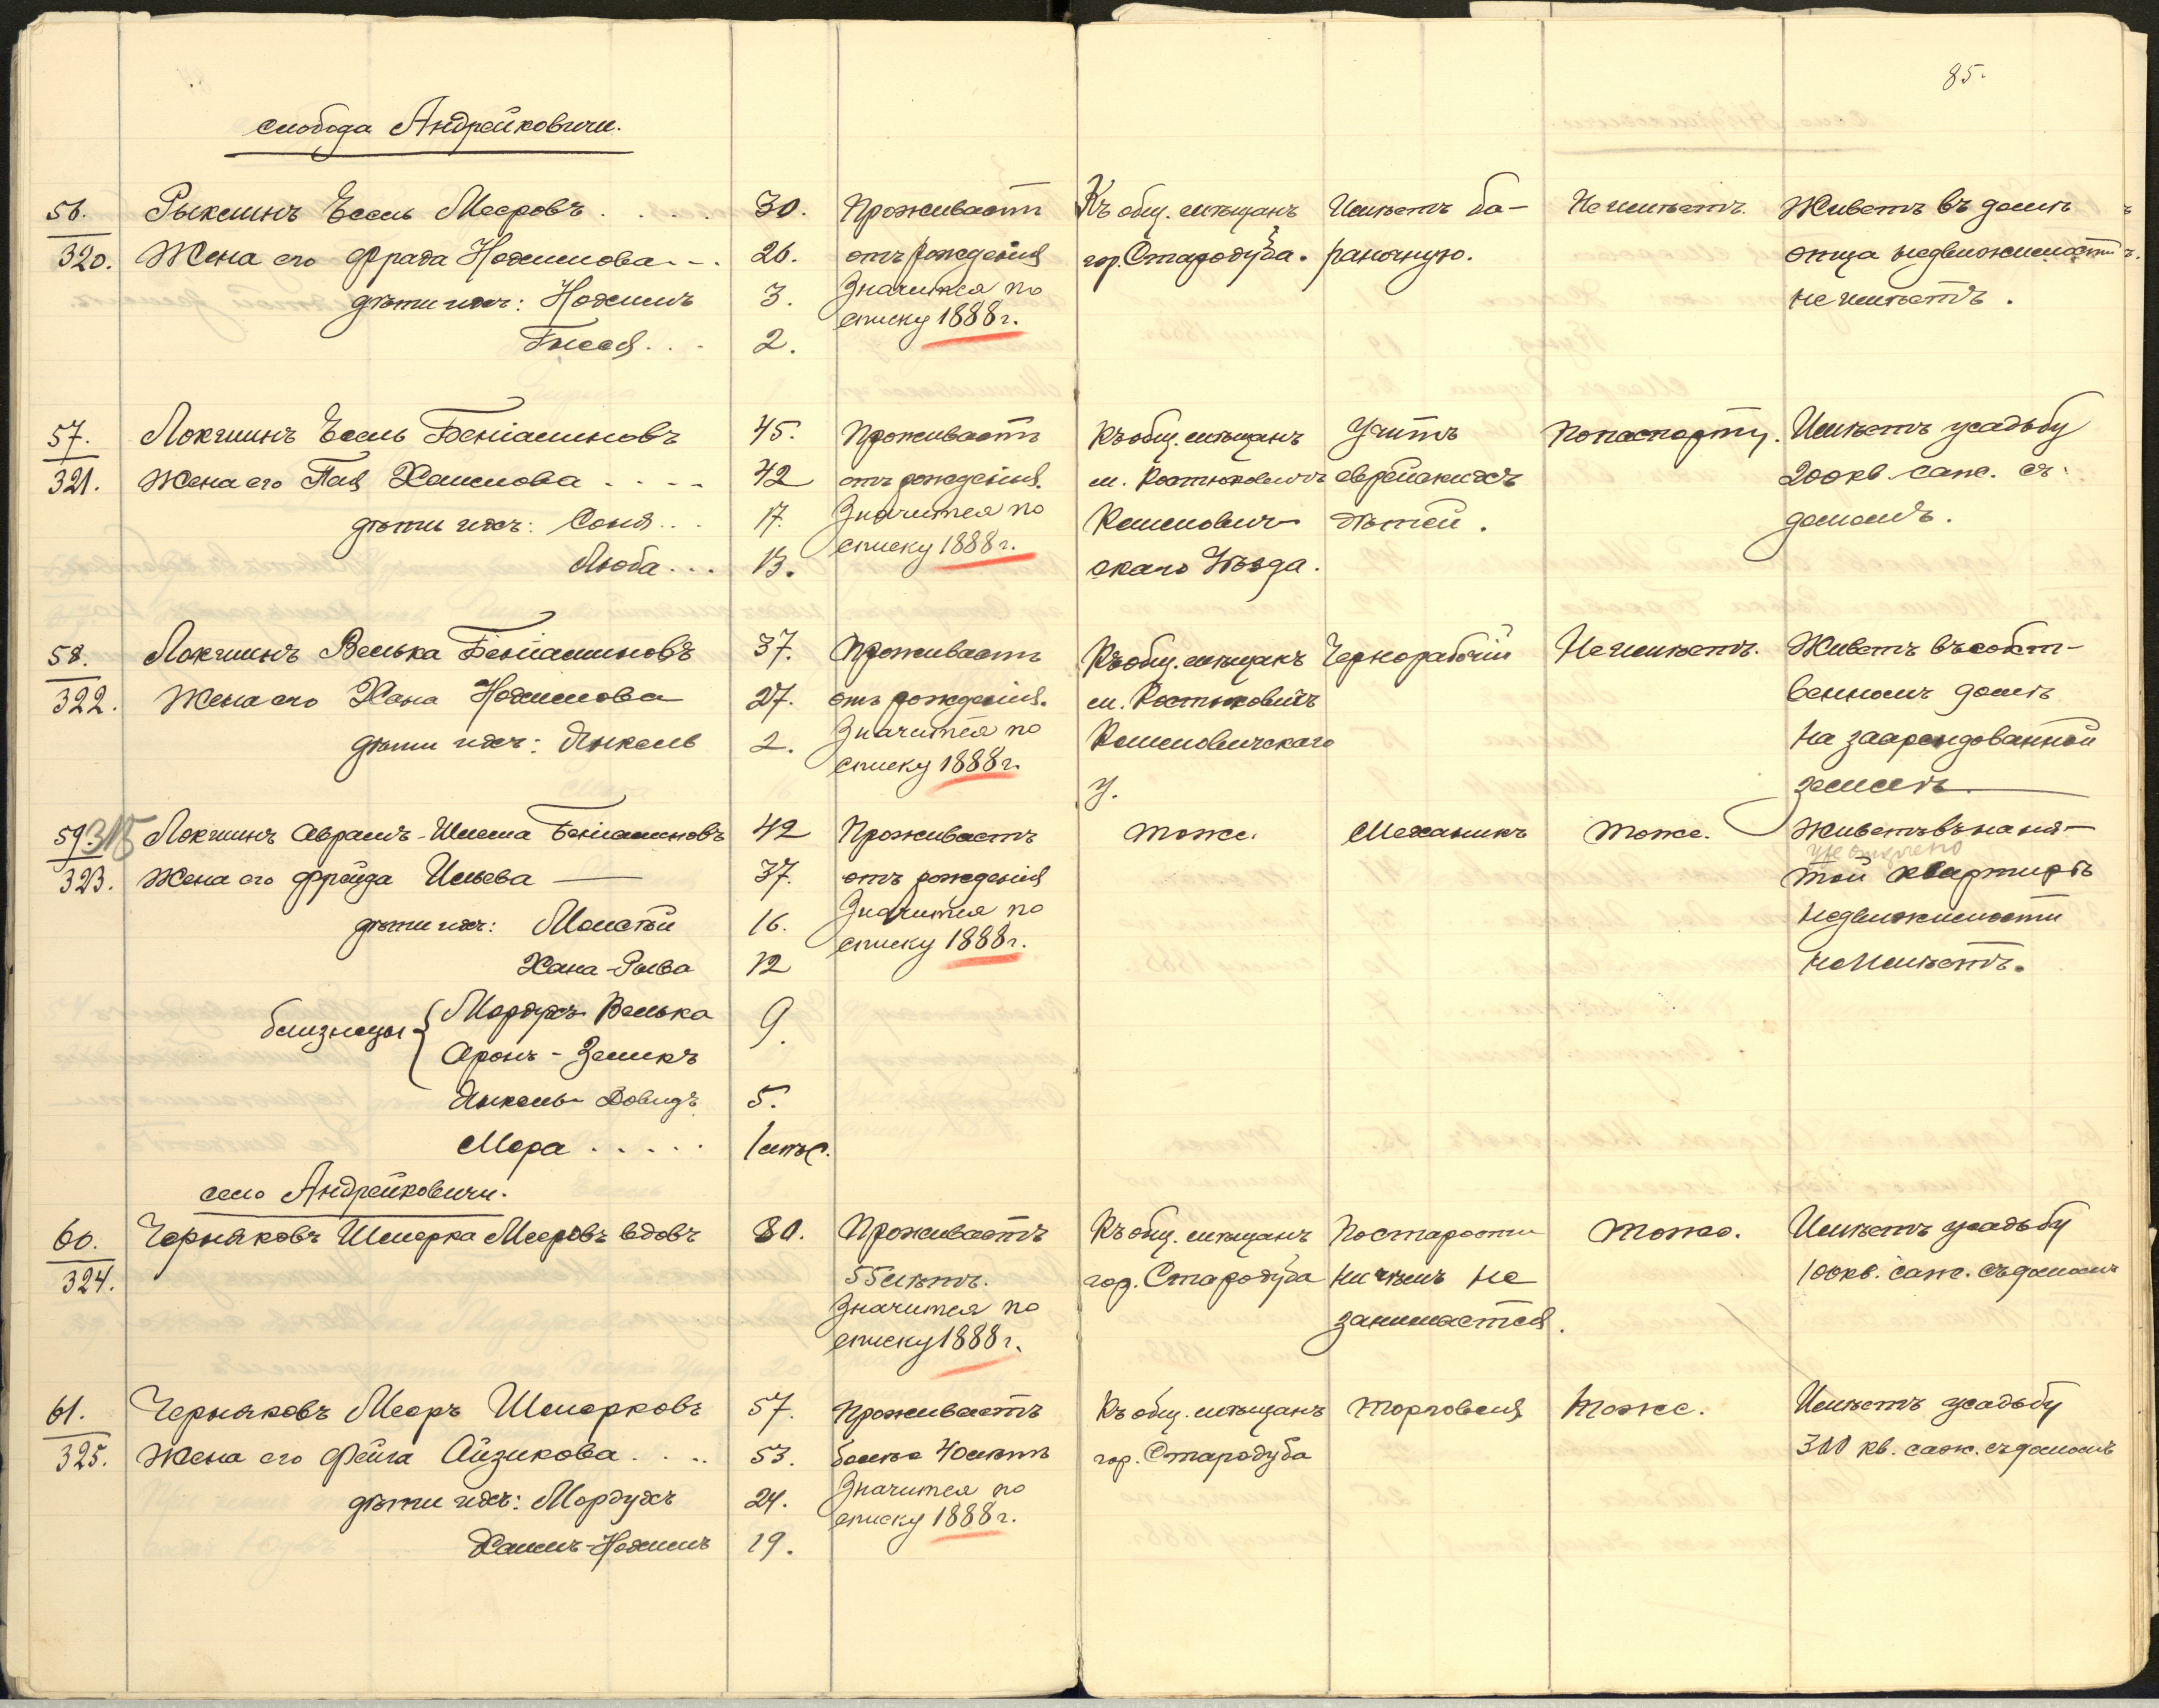 85.
слобода Андрейковичи.
56. Рыклинъ Ессель Мееровъ . . . . 30. Проживаетъ Къ общ. мѣщанъ Имѣетъ ба- Не имѣетъ. Живетъ въ домѣ
320. Жена его Фрада Нохимова - - . 26. отъ рожденія гор. Стародуба. раночную. отца недвижимости
дѣти ихъ: Нохимъ 3. Значится по не имѣетъ.
Гнеся . . . 2. списку 1888 г.
57. Локшинъ Ессель Беніаминовъ 45. Проживаетъ Къ общ. мѣщанъ Учитъ По паспорту. Имѣетъ усадьбу
321. Жена его Пая Хаимова - - - - 42 отъ рожденія. м. Костюковичъ еврейскихъ 200 кв. саж. съ
дѣти ихъ: Соня . . . 17. Значится по Климович- дѣтей. домомъ.
Люба . . . 13. списку 1888 г. скаго Уѣзда.
58. Локшинъ Велька Беніаминовъ 37. Проживаетъ Къ общ. мѣщанъ Чернорабочій Не имѣетъ. Живетъ въ собст-
322. Жена его Хана Нохимова 27. отъ рожденія. м. Костюковичъ венномъ домѣ
дѣти ихъ: Янкель 2. Значится по Климовичскаго на заарендованной
списку 1888 г. у. землѣ
59. 315 Локшинъ Абрамъ-Шлема Беніаминовъ 42 Проживаетъ тоже. Механикъ тоже. Живетъ въ наня-
323. Жена его Фрейда Ильева 37. отъ рожденія той квартирѣ
дѣти ихъ: Моисѣй 16. Значится по недвижимости
Хана-Рыва 12 списку 1888 г. не имѣетъ.
близнецы { Мордухъ Велька 9.
Аронъ-Зеликъ
Янкель-Довидъ 5.
Мера . . . . . 1 мѣс.
село Андрейковичи.
60. Черняковъ Шмерка Мееровъ вдовъ 80. Проживаетъ Къ общ. мѣщанъ По старости тоже. Имѣетъ усадьбу
324. 55 лѣтъ. гор. Стародуба ничѣмъ не 100 кв. саж. съ домомъ
Значится по занимается.
списку 1888 г.
61. Черняковъ Мееръ Шмерковъ 57. Проживаетъ Къ общ. мѣщанъ торговля тоже. Имѣетъ усадьбу
325. Жена его Фейга Айзикова . . .. 53. болѣе 40 лѣтъ гор. Стародуба 300 кв. саж. съ домомъ
дѣти ихъ: Мордухъ 24. Значится по
Хаимъ-Нохимъ 19. списку 1888 г.